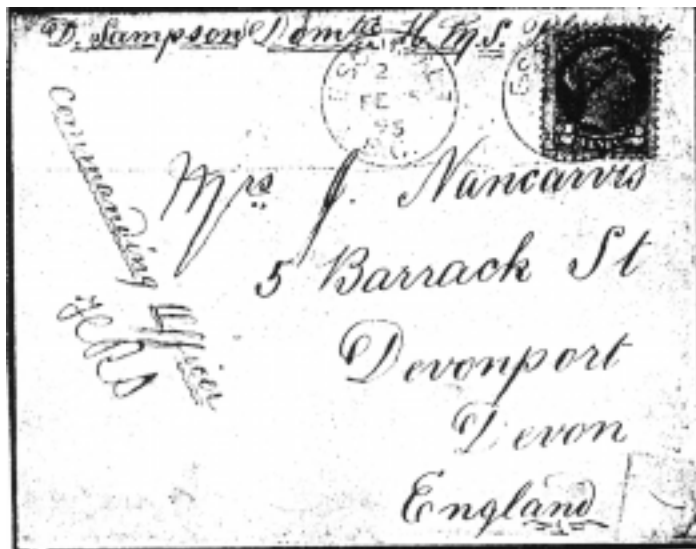 D. Sampson Domtc H.M.S.
ESQUIMALT
2
FE
95
B.C.
Commanding Officer
Mrs J. Nancarvis
5 Barrack St
Devonport
Devon
England